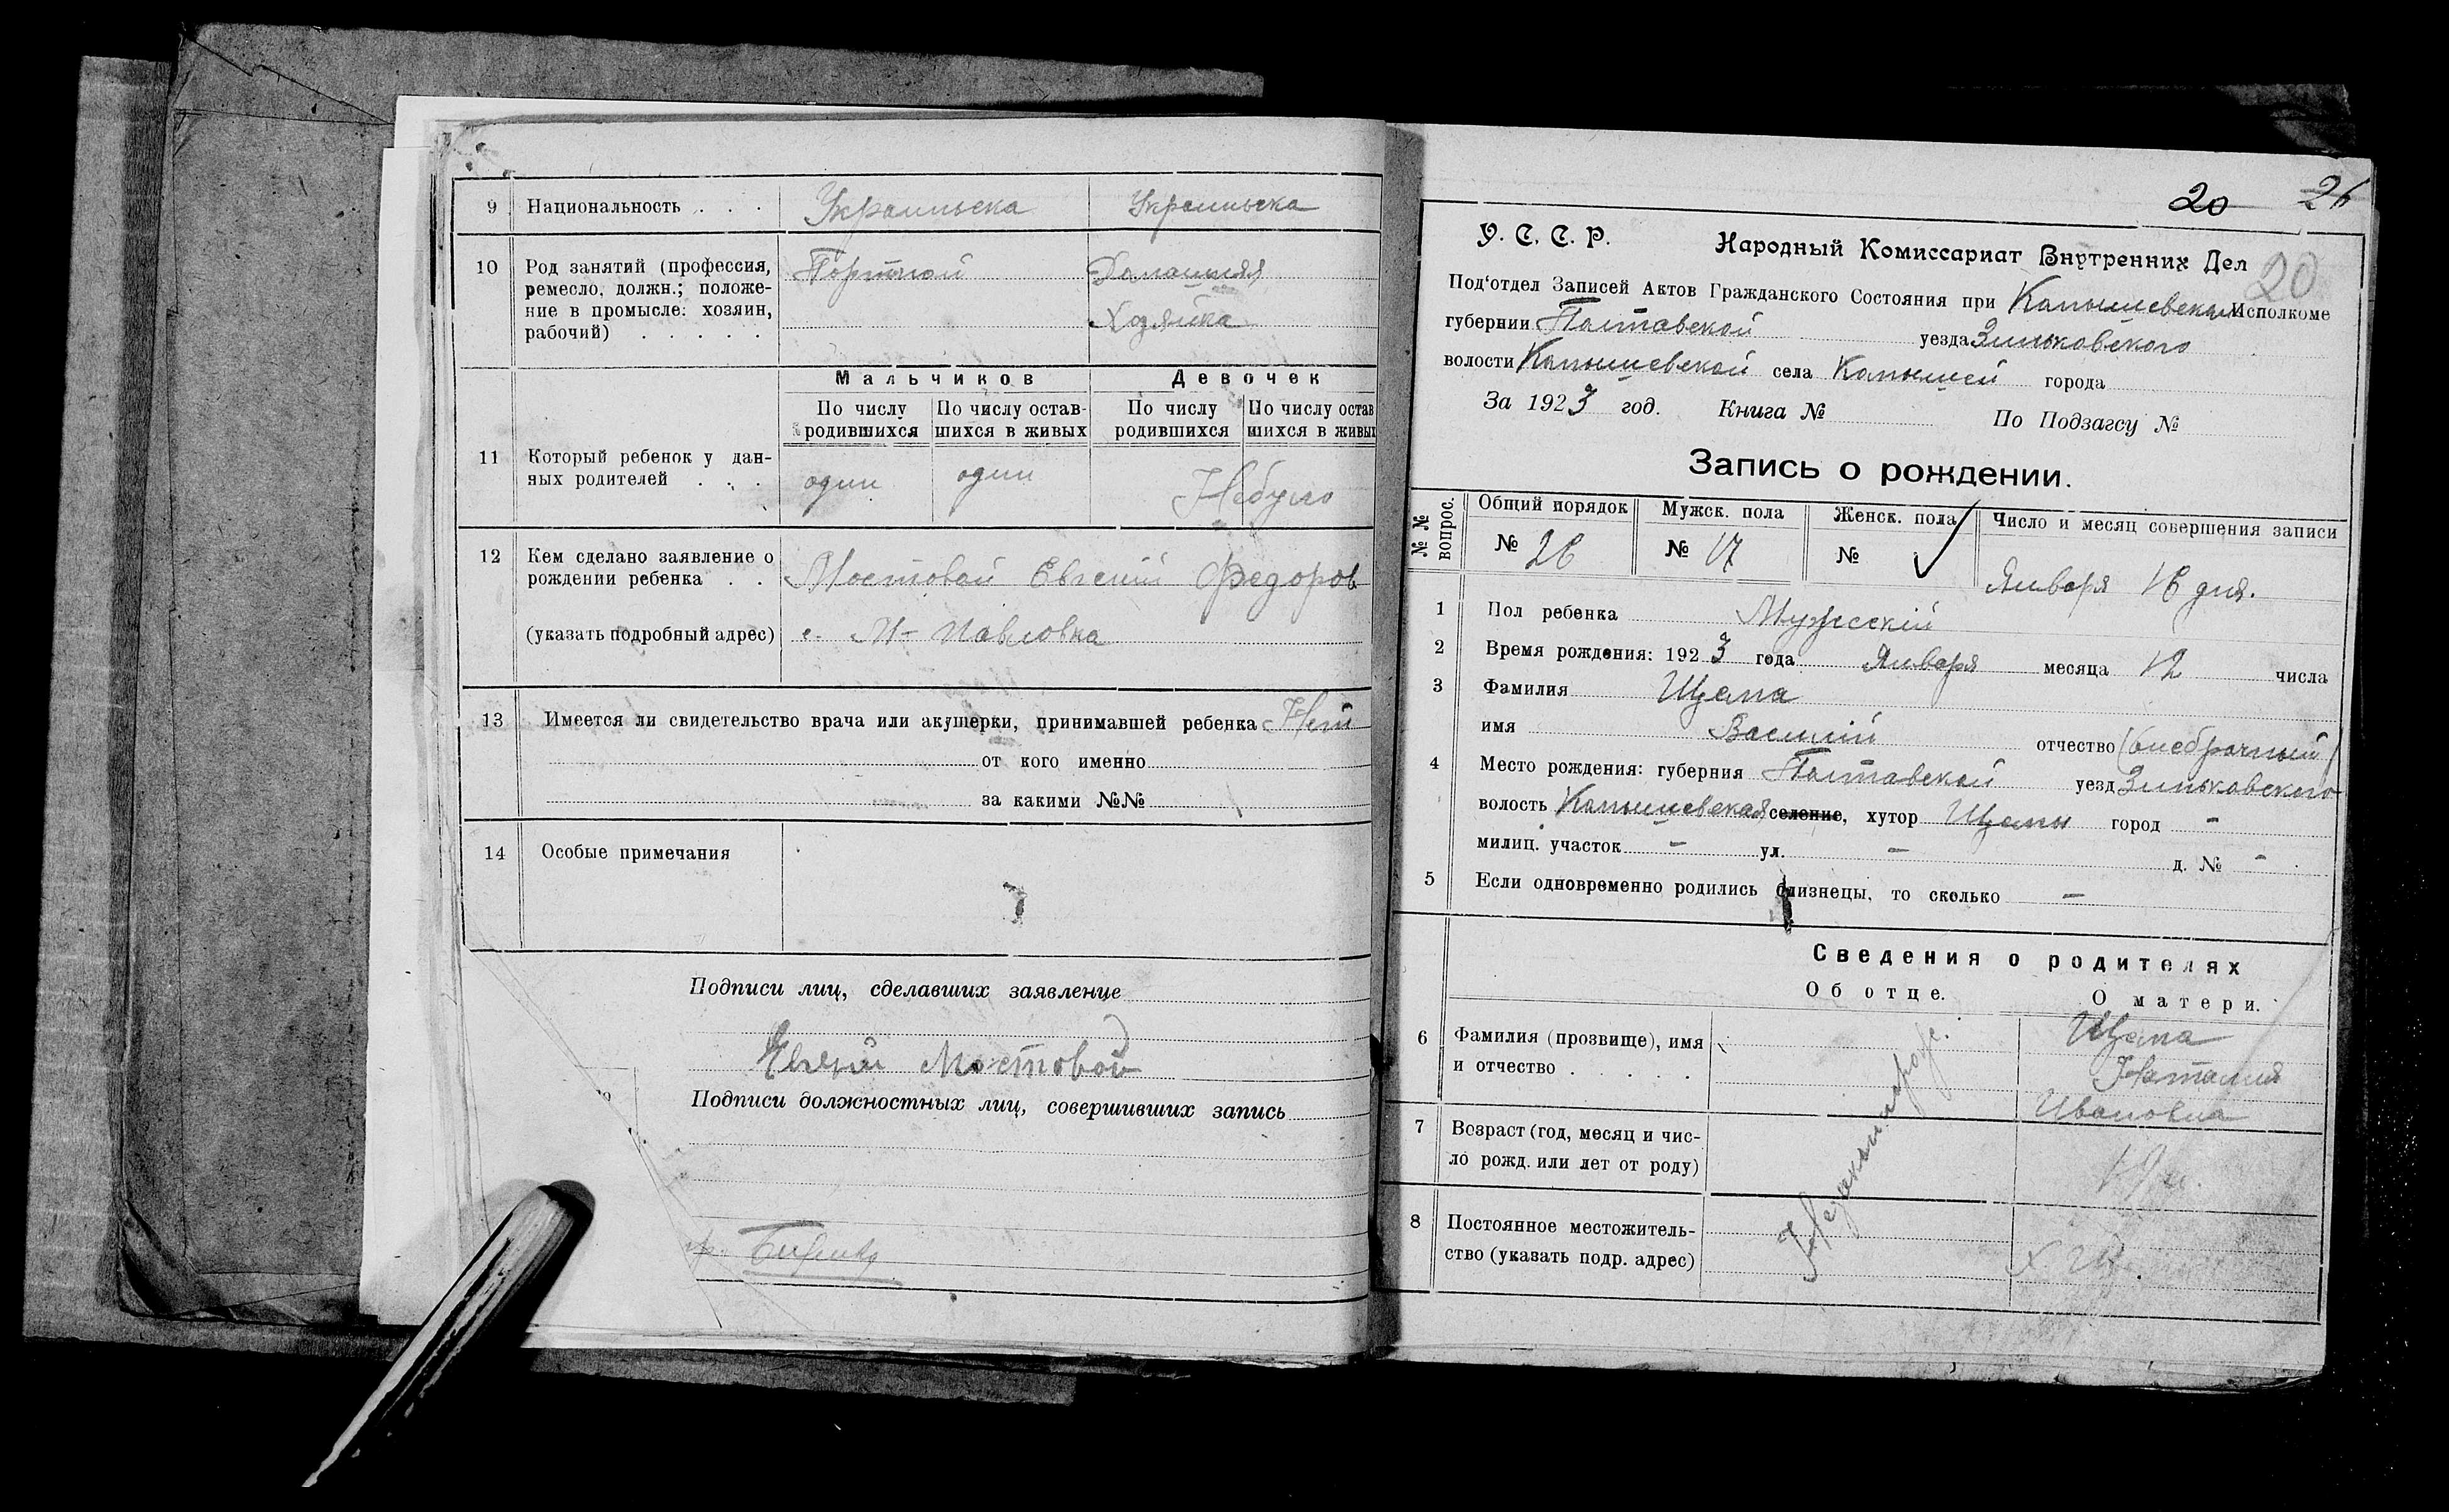 9 Национальность . . . Украинска Украинска
10 Род занятий (профессия, Портной Домашняя
ремесло, должн.; положе-
ние в промысле: хозяин, Хозяйка
рабочий) . . . . .
Мальчиков Девочек
По числу родившихся По числу оставшихся в живых По числу родившихся По числу остав шихся в живых
11 Который ребенок у дан-
ных родителей . . . один один Небуло
12 Кем сделано заявление о
рождении ребенка . . Мостовой Евгений Федоров
(указать подробный адрес) с. М-Павловка
13 Имеется ли свидетельство врача или акушерки, принимавшей ребенка Нет
от кого именно
за какими №№
14 Особые примечания
Подписи лиц, сделавших заявление
Мостовой
Подписи должностных лиц, совершивших запись
20 26
У. С. С. Р. Народный Комиссариат Внутренних Дел
20
Под'отдел Записей Актов Гражданского Состояния при Исполкоме
губернии Полтавской уезда Зиньковского
волости села города
За 1923 год. Книга № По Подзагсу №
Запись о рождении.
№№ вопрос. Общий порядок Мужск. пола Женск. пола Число и месяц совершения записи
№ 26 № 17 №
Января 16 дня.
1 Пол ребенка Мужескій
2 Время рождения: 1923 года Января месяца 12 числа
3 Фамилия Щепа
имя Василій отчество (внебрачный)
4 Место рождения: губерния Полтавской уезд Зиньковского
волость селение, хутор Щепы город -
милиц. участок - ул. - д. № -
5 Если одновременно родились близнецы, то сколько -
Сведения о родителях
Об отце. О матери.
6 Фамилия (прозвище), имя Щепа
и отчество . . . . . Наталия
Ивановна
7 Возраст (год, месяц и чис-
ло рожд. или лет от роду) 19 л.
8 Постоянное местожитель-
ство (указать подр. адрес)